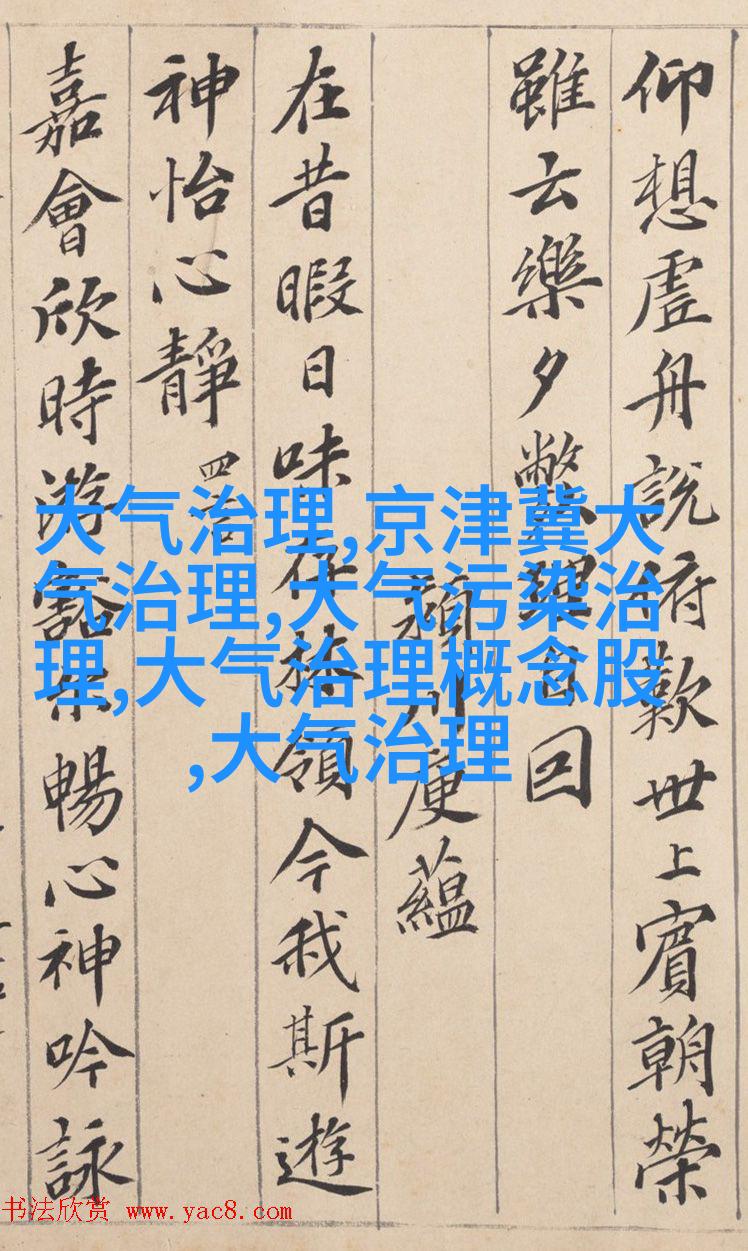 仰想虛舟說俯歎世上賓朝榮
雖云樂夕斃理自回
潁川庾蘊
在昔暇日味存林領今我斯遊
神怡心靜 四言
嘉會欣時游豁尒暢心神吟詠
大气治理,京津冀大
气治理,大气污染治
理,大气治理概念股
,大气治理
书法欣赏 www.yac8.com